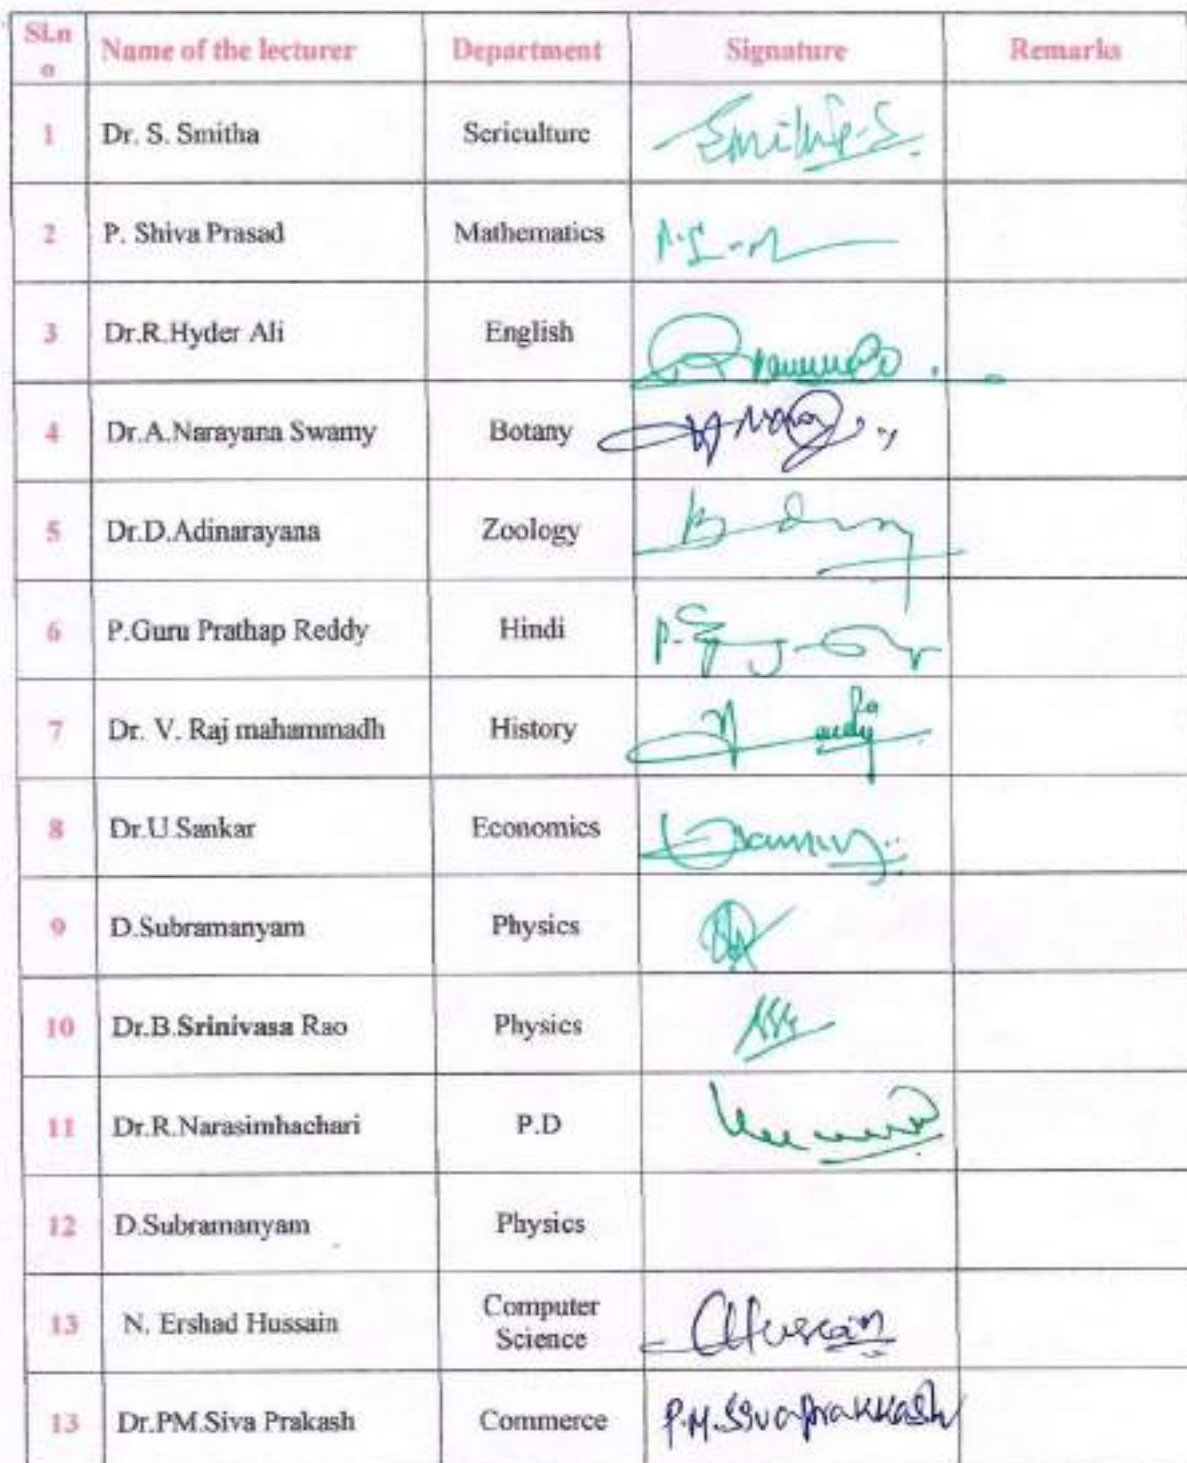 Sl.n
o
Name of the lecturer Department Signature Remarks
1 Dr. S. Smitha Sericulture Smitha.S
2 P. Shiva Prasad Mathematics
3 Dr.R.Hyder Ali English
4 Dr.A.Narayana Swamy Botany
5 Dr.D.Adinarayana Zoology
6 P.Guru Prathap Reddy Hindi
7 Dr. V. Raj mahammadh History
8 Dr.U.Sankar Economics
9 D.Subramanyam Physics
10 Dr.B.Srinivasa Rao Physics
11 Dr.R.Narasimhachari P.D
12 D.Subramanyam Physics
13 N. Ershad Hussain Computer
Science Hussain
13 Dr.PM.Siva Prakash Commerce P.M.Sivaprakkash